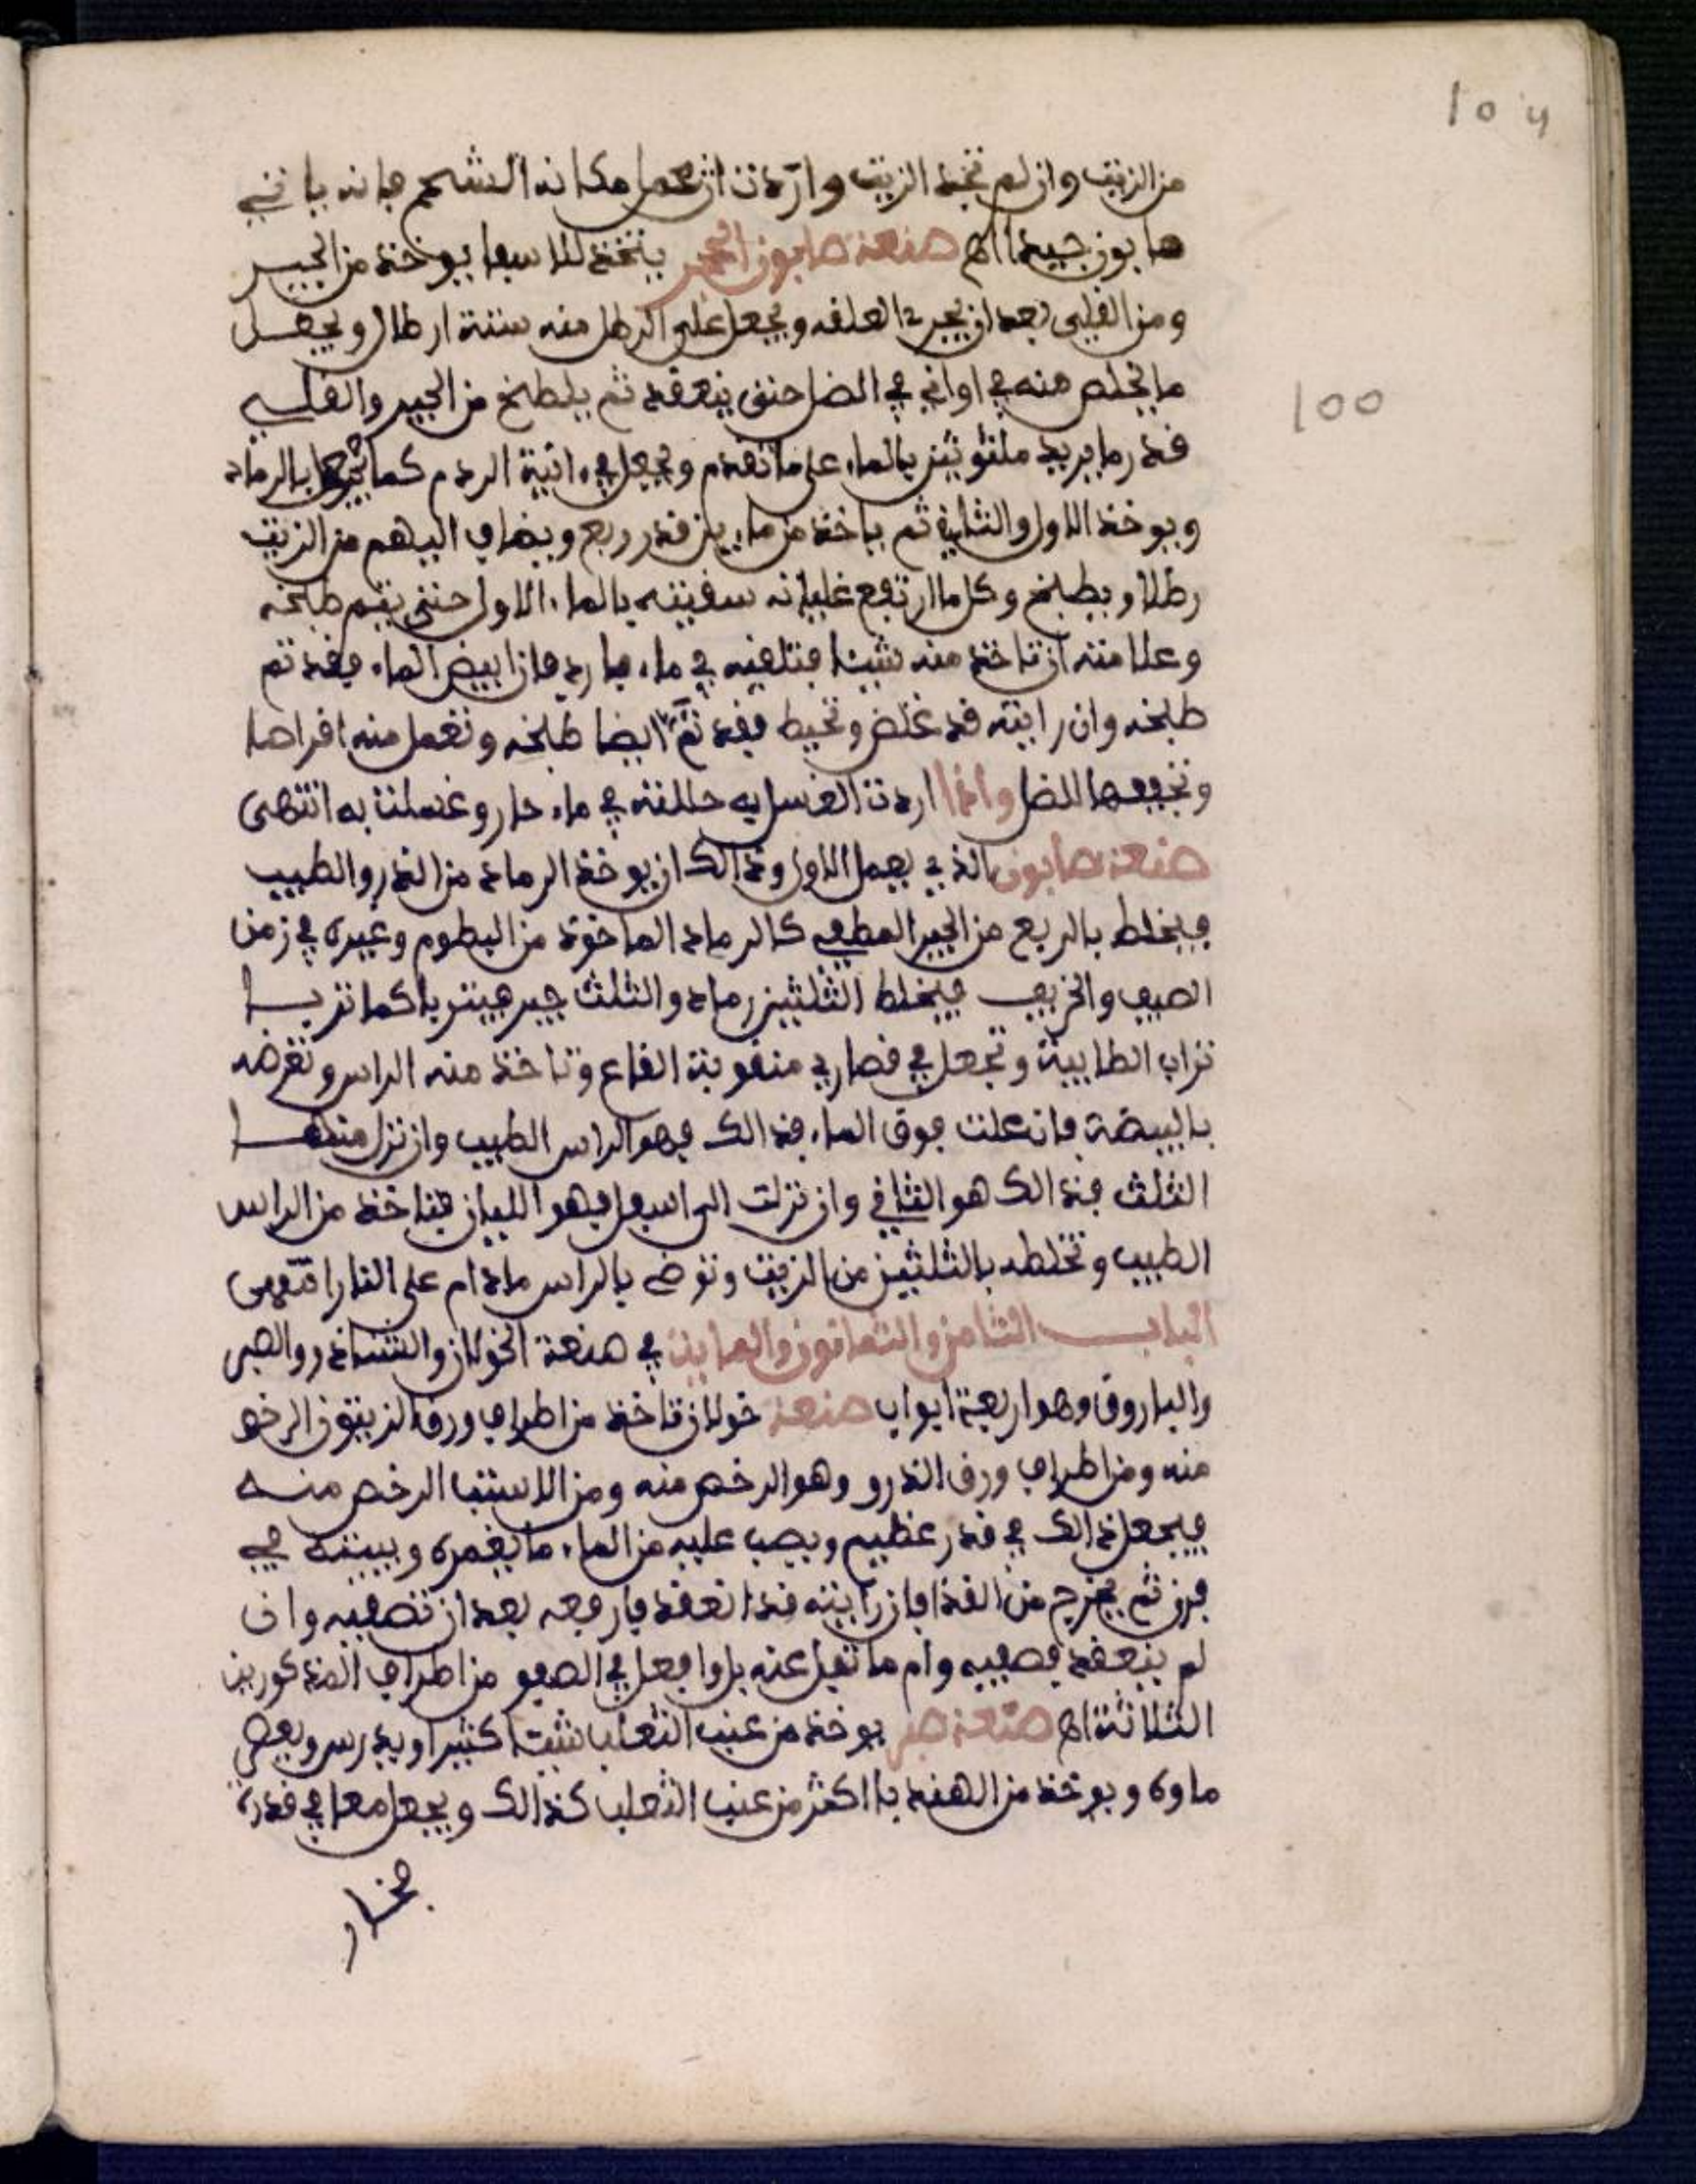 104
من الزيت وان لم تجد الزيت واردت ان تعمل مكانه الشحم فانه ياتي
صابون جيدا اهـ صنعة صابون الحجر يتخذ للاسفا يوخذ من الجير
ومن القلي بعد ان يجر العلقه ويجعل على الرطل منه ستة ارطال ويجعل
ما يخلص منه في اواني في الضل حتى ينعقد ثم يلطخ من الجير والقلي
قدر ما يريد ملتوتين بالماء على ما تقدم ويجعل في ءانية الردم كما يجعل بالرماد
ويوخذ الاول والثاني ثم ياخذ من ماءين قدر ربع ويضاف اليهم من الزيت
رطلا ويطبخ وكل ما ارتفع غليانه سقيته بالماء الاول حتى يتم طبخه
وعلامته ان تاخذ منه شيئا فتلقيه في ماء بارد فان ابيض الماء فقد تم
طبخه وان رايته قد غلض وتخيط فقد تم ايضا طبخه وتعمل منه اقراصا
وتجففها للضل واذا اردت الغسل به حللته في ماء حار وغسلت به انتهى
صنعة صابون الذي يعمل الاول وذالك ان يوخذ الرماد من الذرو الطيب
فيخلط بالربع من الجير المطفي كالرماد الماخوذ من البطوم وغيره في زمن
الصيف والخريف فيخلط الثلثين رماد والثلث جير فيتريا كما تريا
تراب الطابية وتجعل في قصاري منقوبة القاع وتاخذ منه الراس وتعرضه
بالبيضة فان علت فوق الماء فذالك فهو الراس الطيب وان نزل منها
الثلث فذالك هو الثاني وان نزلت الى اسفل فهو اللبان فتاخذ من الراس
الطيب وتخلطه بالثلثين من الزيت وتوضع بالراس مادام على النار انتهى
البـاب الثامن والثمانون والماية في صنعة الخولان والشنادر والصبر
والباروق وهو اربعة ابواب صنعة خولان تاخذ من اطراف ورق الزيتون الرخص
منه ومن اطراف ورق الذرو وهو الرخص منه ومن الاستب الرخص منه
فيجعل ذالك في قدر عظيم ويصب عليه من الماء ما يغمره ويبيته في
فرن ثم يخرج من الغد فان رايته قد انعقد فارفعه بعد ان تصفيه وان
لم ينعقد فصفيه وارم ما ثفل عنه بل وافعل في الصفو من اطراف المذكورين
الثلاثة اهـ صنعة صبر يوخذ من عنب الثعلب شيئا كثيرا ويدرس ويعصر
ماوه ويوخذ من الهندبا اكثر من عنب الثعلب كذالك ويجعل معا في قدرة
فخار
100